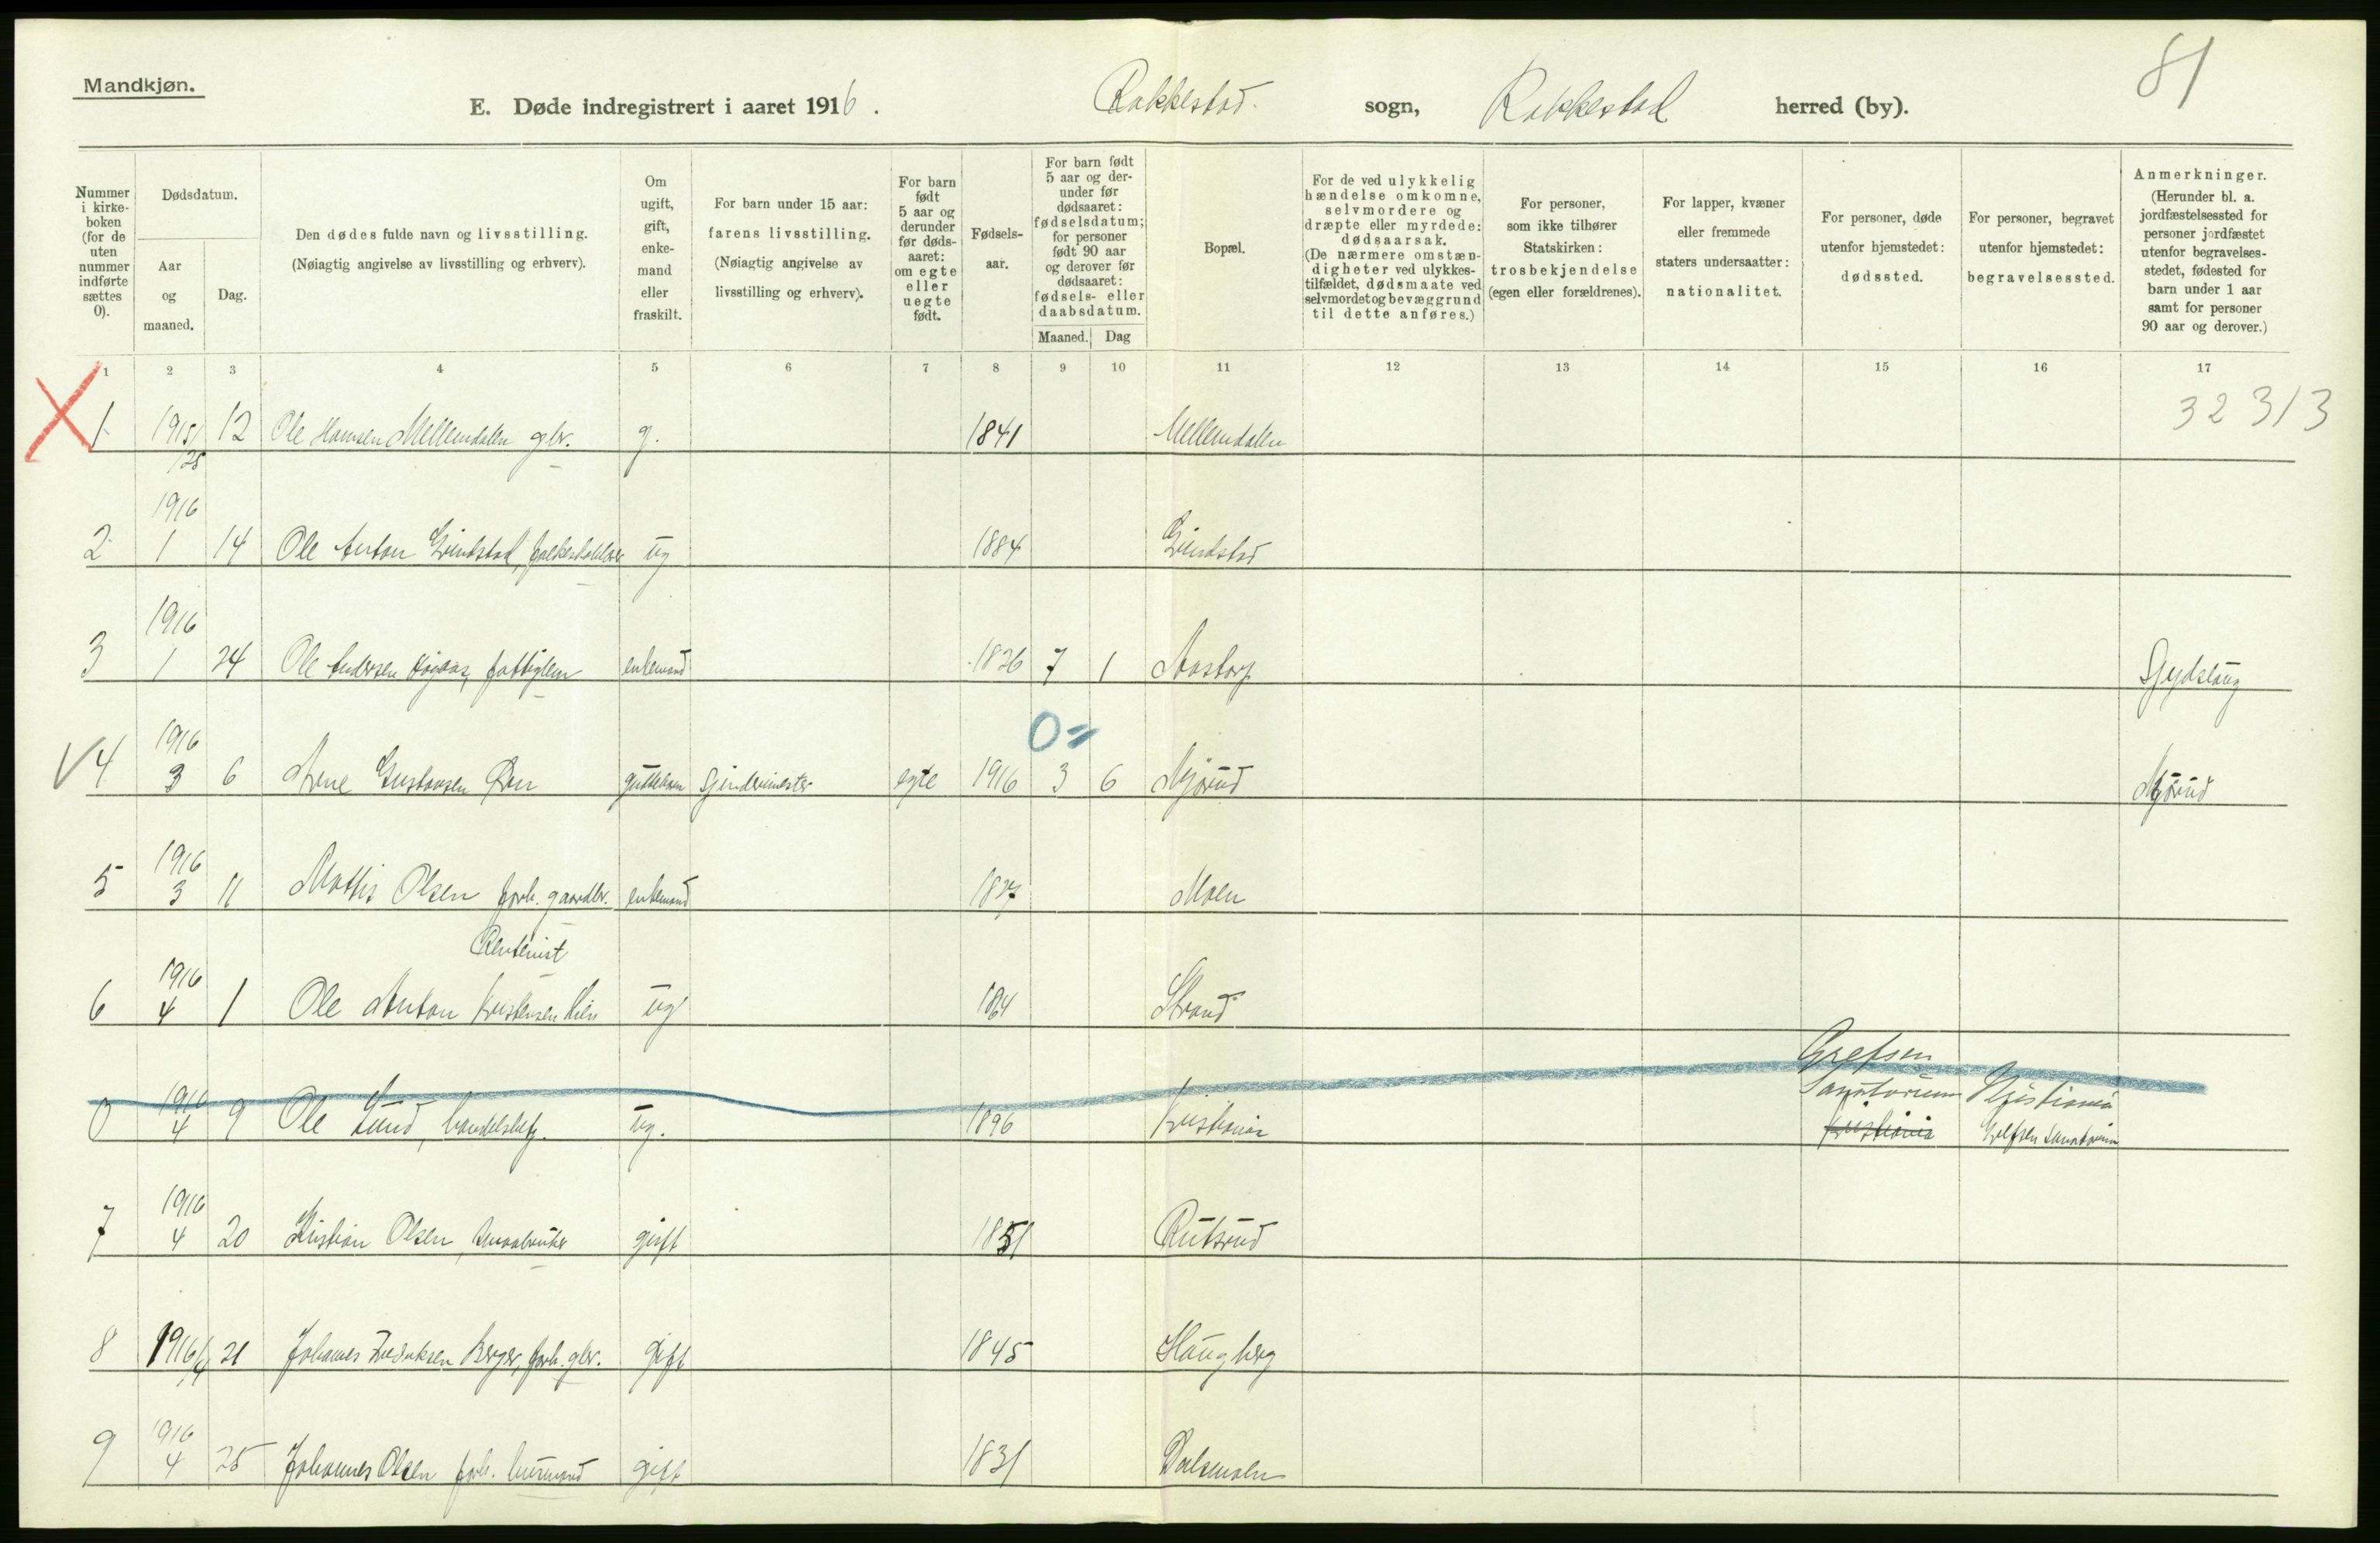 Mandkjøn.
E. Døde indregistrert i aaret 1916. Rakkestad sogn, Rakkestad herred (by). 81
Nummer i kirkeboken (for de uten nummer indførte sættes 0).
Dødsdatum.
Aar og maaned.
Dag.
Den dødes fulde navn og livsstilling.
(Nøiagtig angivelse av livsstilling og erhverv).
Om ugift, gift, enkemand eller fraskilt.
For barn under 15 aar: farens livsstilling.
(Nøiagtig angivelse av livsstilling og erhverv).
For barn født 5 aar og derunder før dødsaaret: om egte eller uegte født.
Fødselsaar.
For barn født 5 aar og derunder før dødsaaret: fødselsdatum; for personer født 90 aar og derover før dødsaaret: fødsels- eller daabsdatum.
Maaned. Dag
Bopæl.
For de ved ulykkelig hændelse omkomne, selvmordere og dræpte eller myrdede: dødsaarsak.
(De nærmere omstændigheter ved ulykkestilfældet, dødsmaate ved selvmordet og bevæggrund til dette anføres.)
For personer, som ikke tilhører Statskirken: trosbekjendelse (egen eller forældrenes).
For lapper, kvæner eller fremmede staters undersaatter: nationalitet.
For personer, døde utenfor hjemstedet: dødssted.
For personer, begravet utenfor hjemstedet: begravelsessted.
Anmerkninger.
(Herunder bl. a. jordfæstelsessted for personer jordfæstet utenfor begravelsesstedet, fødested for barn under 1 aar samt for personer 90 aar og derover.)
1 2 3 4 5 6 7 8 9 10 11 12 13 14 15 16 17
32313
1 1915/ 12 Ole Hansen Mellemdalen gbr. g. 1841 Mellemdalen
2 1916 1 14 Ole Anton Grindstad, ug 1884 Grindstad
3 1916 1 24 Ole Andersen fattiglem enkemand 1826 7 1 Aastorp
0=
4 1916 3 6 Arne Gustavsen guttebarn egte 1916 3 6 Mjørud Mjørud
5 1916 3 11 Mathis Olsen forh. gaardbr. enkemand 1827 Moen
Rentenist
6 1916 4 1 Ole Anton Kristensen ug 1864 Strand
Grefsen
0 1916 4 9 Ole Lund, ug. 1896 Kristiania Sanatorium Kristiania
Kristiania Grefsen Sanatorium
7 1916 4 20 Kristian Olsen, Smaabruker gift 1851 Rutsrud
8 1916/4 21 Johannes Fredriksen Berger, forh. gbr. gift 1845 Haugberg
9 1916 4 25 Johannes Olsen forh. husmand gift 1831